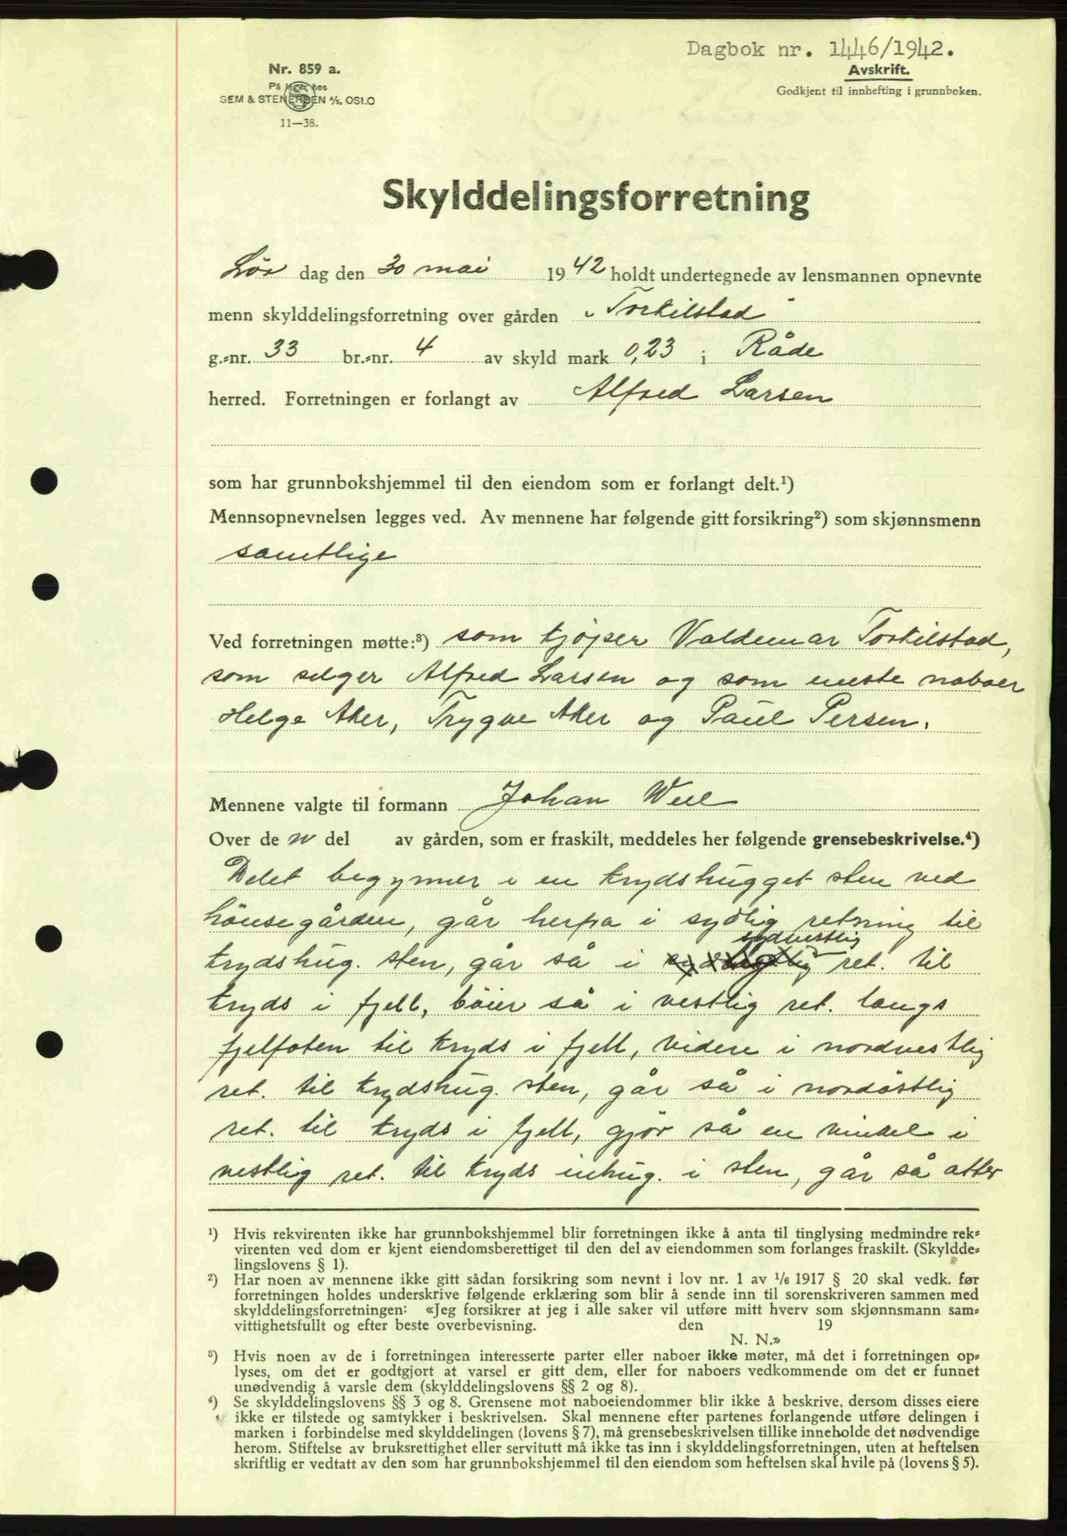 Dagbok nr. 1446/1942.
Avskrift.
Godkjent til innhefting i grunnboken.
Nr. 859 a.
På lager hos
SEM & STENERSEN A/S, OSLO
11—38.
Skylddelingsforretning
Lör dag den 30 mai 1942 holdt undertegnede av lensmannen opnevnte
menn skylddelingsforretning over gården „Torkilstad"
g.-nr. 33 br.-nr. 4 av skyld mark 0,23 i Råde
herred. Forretningen er forlangt av Alfred Larsen
som har grunnbokshjemmel til den eiendom som er forlangt delt.¹)
Mennsopnevnelsen legges ved. Av mennene har følgende gitt forsikring²) som skjønnsmenn
samtlige
Ved forretningen møtte:³) som kjöper Valdemar Torkilstad,
som selger Alfred Larsen og som eneste naboer
Helge Aker, Trygve Aker og Paul Persen.
Mennene valgte til formann Johan Weel
Over de n del av gården, som er fraskilt, meddeles her følgende grensebeskrivelse.⁴)
Delet begynner i en krydshugget sten ved
hönsegården, går herfra i sydlig retning til
sydvestlig
krydshug. sten, går så i ret. til
kryds i fjell, böier så i vestlig ret. langs
fjelfoten til kryds i fjell, videre i nordvestlig
ret. til krydshug. sten, går så i nordöstlig
ret. til kryds i fjell, gjör så en vinkel i
vestlig ret. til kryds inhug. i sten, går så atter
¹) Hvis rekvirenten ikke har grunnbokshjemmel blir forretningen ikke å anta til tinglysing medmindre rek-
virenten ved dom er kjent eiendomsberettiget til den del av eiendommen som forlanges fraskilt. (Skyldde-
lingslovens § 1).
²) Har noen av mennene ikke gitt sådan forsikring som nevnt i lov nr. 1 av 1/6 1917 § 20 skal vedk. før
forretningen holdes underskrive følgende erklæring som blir å sende inn til sorenskriveren sammen med
skylddelingsforretningen: «Jeg forsikrer at jeg i alle saker vil utføre mitt hverv som skjønnsmann sam-
vittighetsfullt og efter beste overbevisning. den 19
N. N.»
³) Hvis noen av de i forretningen interesserte parter eller naboer ikke møter, må det i forretningen op-
lyses, om det er godtgjort at varsel er gitt dem, eller for naboers vedkommende om det er funnet
unødvendig å varsle dem (skylddelingslovens §§ 2 og 8).
⁴) Se skylddelingslovens §§ 3 og 8. Grensene mot naboeiendommer blir ikke å beskrive, dersom disses eiere
ikke er tilstede og samtykker i beskrivelsen. Skal mennene efter partenes forlangende utføre delingen i
marken i forbindelse med skylddelingen (lovens § 7), må grensebeskrivelsen tillike inneholde det nødvendige
herom. Stiftelse av bruksrettighet eller servitutt må ikke tas inn i skylddelingsforretningen, uten at heftelsen
skriftlig er vedtatt av den som har grunnbokshjemmel til den eiendom som heftelsen skal hvile på (lovens § 5).